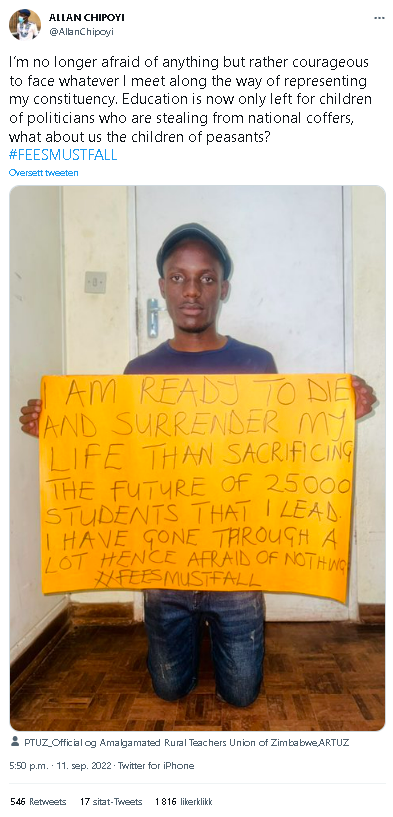 ALLAN CHIPOYI
@AllanChipoyi
I'm no longer afraid of anything but rather courageous
to face whatever I meet along the way of representing
my constituency. Education is now only left for children
of politicians who are stealing from national coffers,
what about us the children of peasants?
#FEESMUSTFALL
Oversett tweeten
I AM READY TO DIE
AND SURRENDER MY
LIFE THAN SACRIFICING
THE FUTURE OF 25000
STUDENTS THAT I LEAD.
I HAVE GONE THROUGH A
LOT HENCE AFRAID OF NOTHING
#FEESMUSTFALL
PTUZ_Official og Amalgamated Rural Teachers Union of Zimbabwe,ARTUZ
5:50 p.m. · 11. sep. 2022 · Twitter for iPhone
546 Retweets 17 sitat-Tweets 1 816 likerklikk